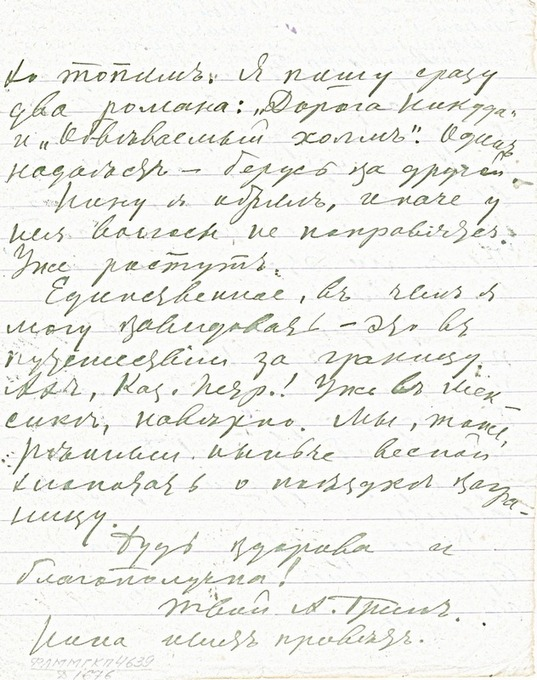 но топимъ. Я пишу сразу
два романа: „Дорога Никуда“
и „Обвѣваемый холмъ“. Одинъ
надоѣстъ — берусь за другой.
Нину я обрилъ, иначе у
нея волосы не поправятся.
Уже растутъ.
Единственное, въ чемъ я
могу завидовать — это въ
путешествіи за границу.
Ахъ, Кац. Петр.! Ужъ въ Мек-
сикѣ, навѣрно. Мы, тоже,
рѣшили нынѣче весной
хлопотать о поѣздкѣ загра-
ницу.
Будь здорова и
благополучна!
Твой А. Гринъ.
Нина шлетъ привѣтъ.
ФЛММГКП4639
Д 1676